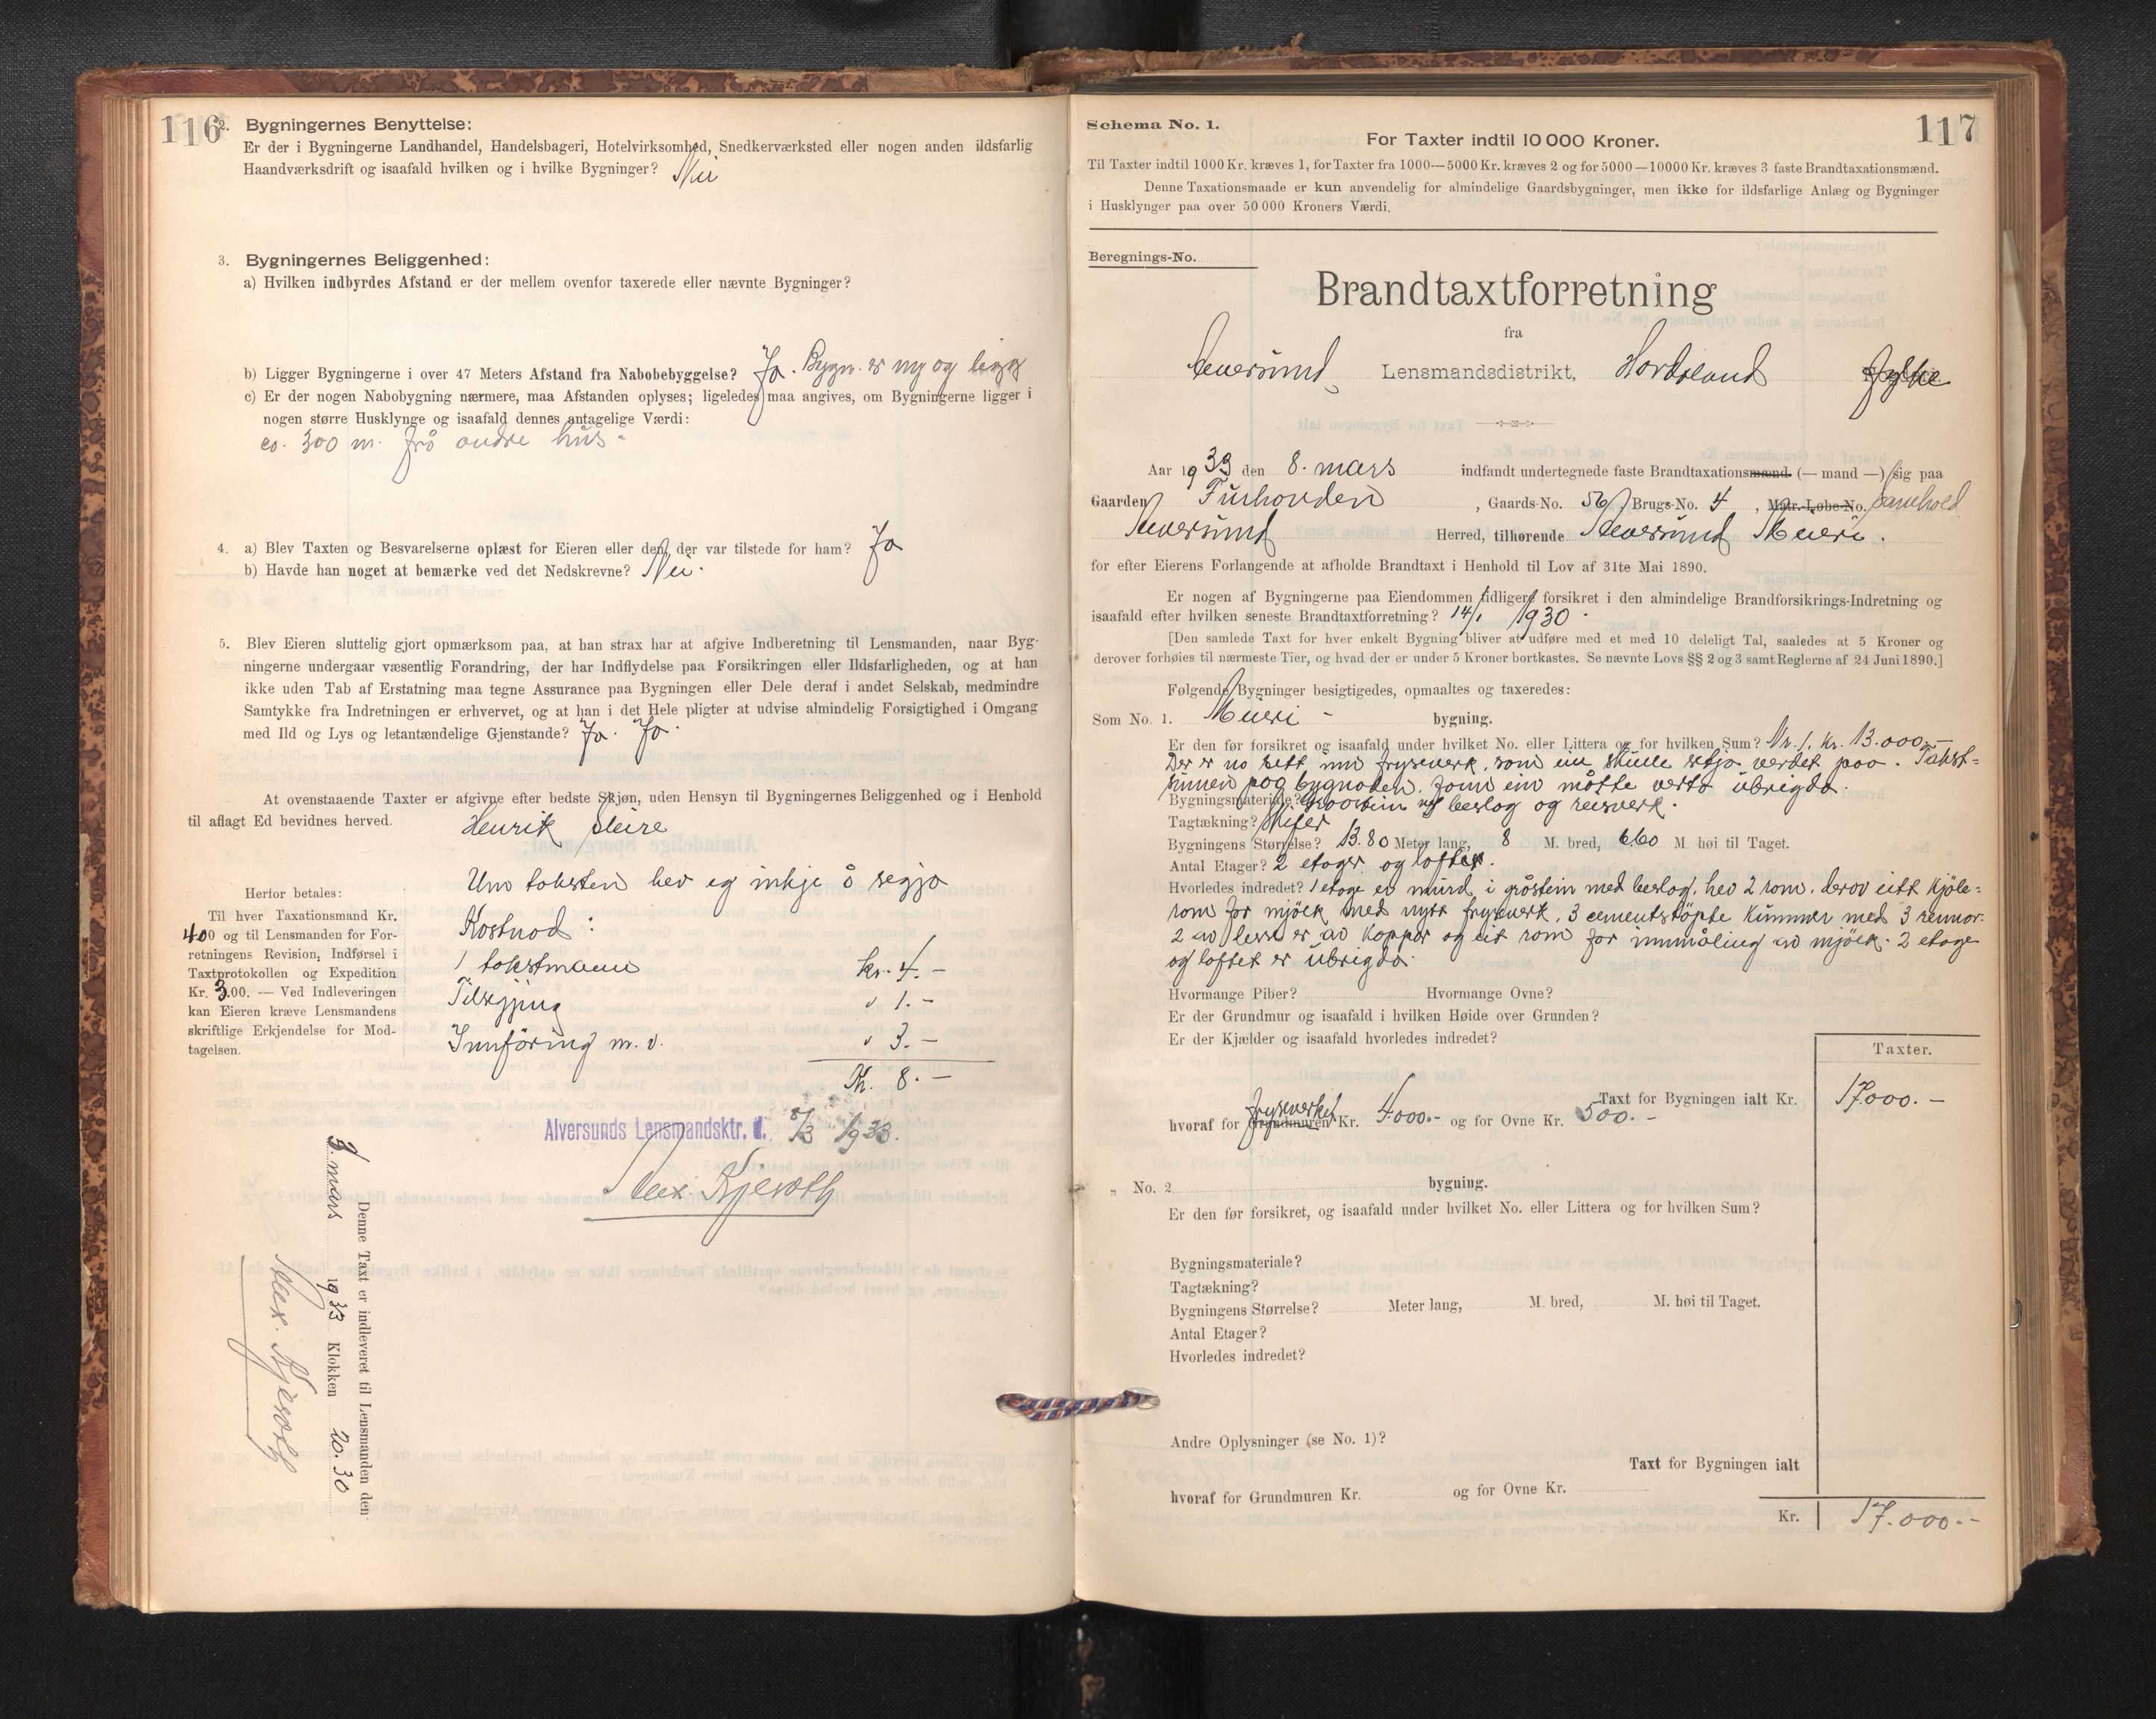 116
2. Bygningernes Benyttelse:
Er der i Bygningerne Landhandel, Handelsbageri, Hotelvirksomhed, Snedkerværksted eller nogen anden ildsfarlig
Haandværksdrift og isaafald hvilken og i hvilke Bygninger? Nei
3. Bygningernes Beliggenhed:
a) Hvilken indbyrdes Afstand er der mellem ovenfor taxerede eller nævnte Bygninger?
b) Ligger Bygningerne i over 47 Meters Afstand fra Nabobebyggelse? Ja. Bygn. er ny og ligg
c) Er der nogen Nabobygning nærmere, maa Afstanden oplyses; ligeledes maa angives, om Bygningerne ligger i
nogen større Husklynge og isaafald dennes antagelige Værdi:
ca. 300 m. frå andre hus.
4. a) Blev Taxten og Besvarelserne oplæst for Eieren eller den, der var tilstede for ham? Ja
b) Havde han noget at bemærke ved det Nedskrevne? Nei.
5. Blev Eieren sluttelig gjort opmærksom paa, at han strax har at afgive Indberetning til Lensmanden, naar Byg-
ningerne undergaar væsentlig Forandring, der har Indflydelse paa Forsikringen eller Ildsfarligheden, og at han
ikke uden Tab af Erstatning maa tegne Assurance paa Bygningen eller Dele deraf i andet Selskab, medmindre
Samtykke fra Indretningen er erhvervet, og at han i det Hele pligter at udvise almindelig Forsigtighed i Omgang
med Ild og Lys og letantændelige Gjenstande? Ja. Ja.
At ovenstaaende Taxter er afgivne efter bedste Skjøn, uden Hensyn til Bygningernes Beliggenhed og i Henhold
til aflagt Ed bevidnes herved.
Henrik Seire
Um taksten hev eg inkje å segja
Herfor betales:
Til hver Taxationsmand Kr.
400 og til Lensmanden for For-
retningens Revision, Indførsel i
Taxtprotokollen og Expedition
Kr. 3.00. — Ved Indleveringen
kan Eieren kræve Lensmandens
skriftlige Erkjendelse for Mod-
tagelsen.
Kostnad:
1 takstmann kr. 4.-
Tilsegjing " 1.-
Innföring m. v. " 3.-
Kr. 8.-
Alversunds Lensmandsktr. d. 8/3 1933.
Alex. Kjevoll
Denne Taxt er indleveret til Lensmanden den
9. mars 1933 Klokken 20.30
Alex. Kjevoll
117
Schema No. 1.
For Taxter indtil 10 000 Kroner.
Til Taxter indtil 1000 Kr. kræves 1, for Taxter fra 1000—5000 Kr. kræves 2 og for 5000—10000 Kr. kræves 3 faste Brandtaxationsmænd.
Denne Taxationsmaade er kun anvendelig for almindelige Gaardsbygninger, men ikke for ildsfarlige Anlæg og Bygninger
i Husklynger paa over 50 000 Kroners Værdi.
Beregnings-No.
Brandtaxtforretning
fra
Alversund Lensmandsdistrikt, Hordaland fylke
Aar 1933 den 8. mars indfandt undertegnede faste Brandtaxationsmænd (— mand —) sig paa
Gaarden Furhovden, Gaards-No. 56, Brugs-No. 4, Matr.-Løbe-No.
Alversund Herred, tilhørende Alversund Meieri.
for efter Eierens Forlangende at afholde Brandtaxt i Henhold til Lov af 31te Mai 1890.
Er nogen af Bygningerne paa Eiendommen tidligere forsikret i den almindelige Brandforsikrings-Indretning og
isaafald efter hvilken seneste Brandtaxtforretning? 14/1 1930.
[Den samlede Taxt for hver enkelt Bygning bliver at udføre med et med 10 deleligt Tal, saaledes at 5 Kroner og
derover forhøies til nærmeste Tier, og hvad der er under 5 Kroner bortkastes. Se nævnte Lovs §§ 2 og 3 samt Reglerne af 24 Juni 1890.]
Følgende Bygninger besigtigedes, opmaaltes og taxeredes:
Som No. 1. Meieri - bygning.
Er den før forsikret og isaafald under hvilket No. eller Littera og for hvilken Sum? Nr. 1. Kr. 13.000.-
Der er no sett inn fryseverk, som ein skulle setja verdet paa. Takst-
summen paa bygnaden, fann ein måtte verta ubrigda.
Bygningsmateriale? Graastein m/ beslag og reisverk.
Tagtækning? Skifer
Bygningens Størrelse? 13.80 Meter lang, 8 M. bred, 6.60 M. høi til Taget.
Antal Etager? 2 etager og loftet.
Hvorledes indredet? 1 etage er mura i gråstein med beslag, hev 2 rom, derav eitt kjöle-
rom for mjölk med nytt fryseverk, 3 cementstöpte kummer med 3 rennor.
2 av desse er av kopper og eit rom for innmåling av mjölk. 2 etage
og loftet er ubrigda.
Hvormange Piber? Hvormange Ovne?
Er der Grundmur og isaafald i hvilken Høide over Grunden?
Er der Kjælder og isaafald hvorledes indredet?
Taxter.
Taxt for Bygningen ialt Kr. 17.000.-
hvoraf for Grundmuren fryseverket Kr. 4.000.- og for Ovne Kr. 500.-
„ No. 2 bygning.
Er den før forsikret, og isaafald under hvilket No. eller Littera og for hvilken Sum?
Bygningsmateriale?
Tagtækning?
Bygningens Størrelse? Meter lang, M. bred, M. høi til Taget.
Antal Etager?
Hvorledes indredet?
Andre Oplysninger (se No. 1)?
Taxt for Bygningen ialt
hvoraf for Grundmuren Kr. og for Ovne Kr.
Kr. 17.000.-